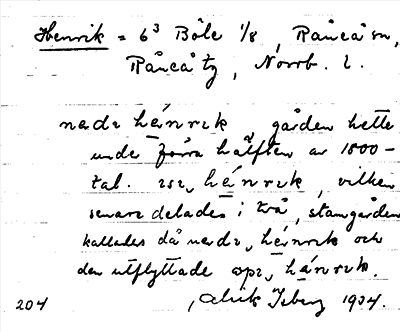 Henrik = 6³ Böle 1/8, Råneå sn,
Råneå tg, Norrb. l.
nedr hánrik, gården hette
unde förra hälften av 1800-
tal. hánrik, vilken
senare delades i två, stamgården
kallades då nedr, hánrik och
den utflyttade hánrik.
204 1934.